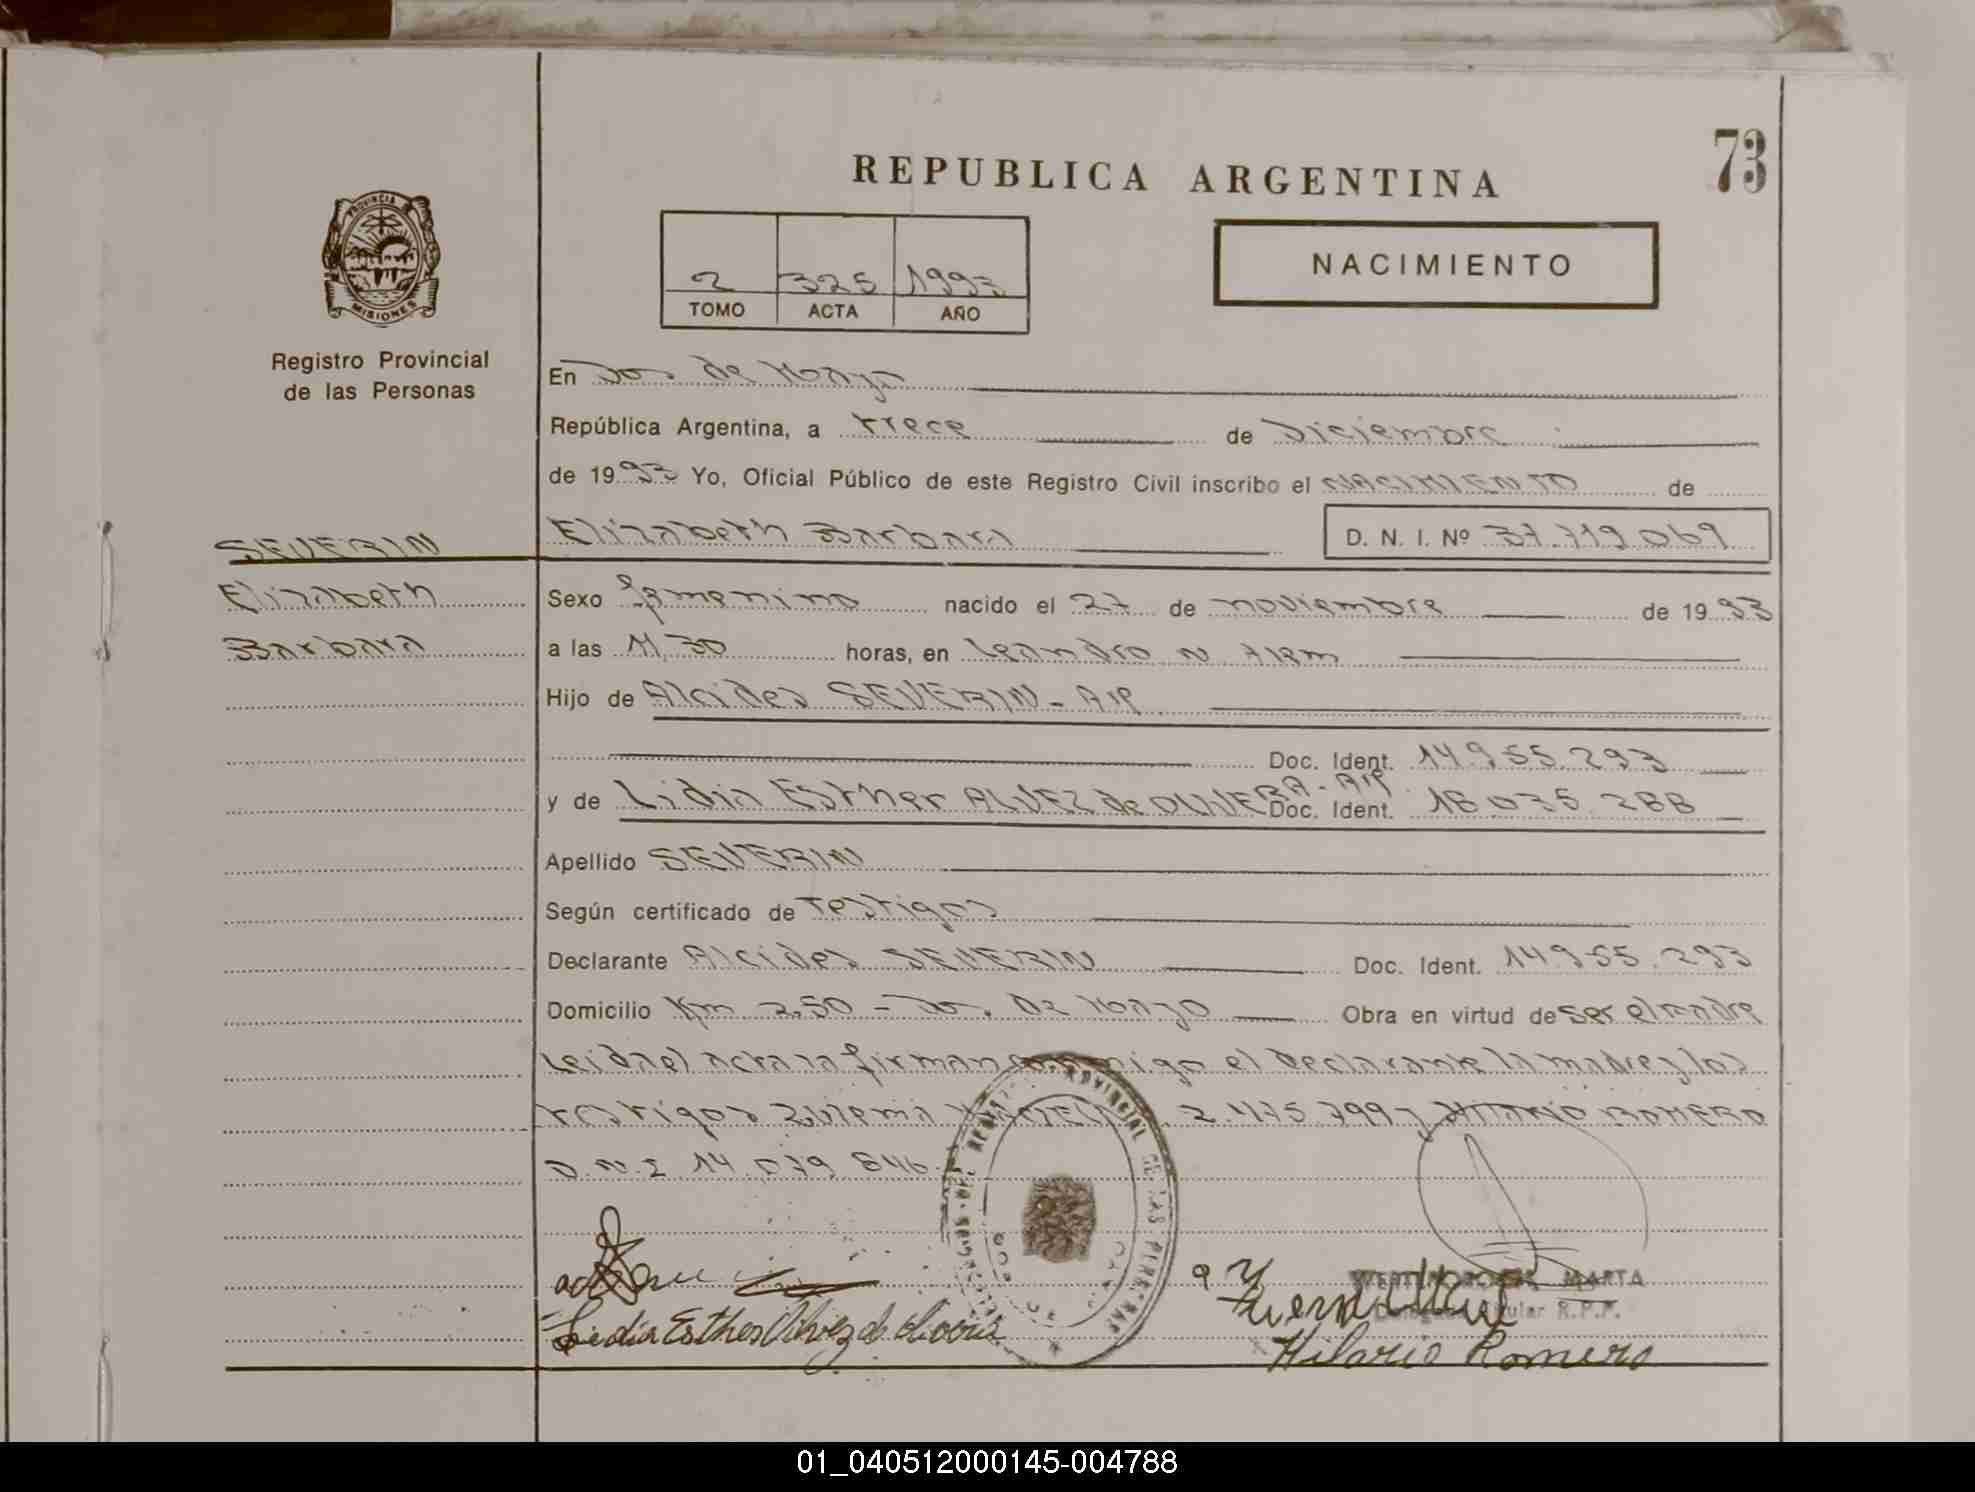 73
REPUBLICA ARGENTINA
PROVINCIA
MISIONES
Registro Provincial
de las Personas
2 325 1993
TOMO ACTA AÑO
NACIMIENTO
En Dos de Mayo
República Argentina, a trece de Diciembre
de 1993 Yo, Oficial Público de este Registro Civil inscribo el NACIMIENTO de
SEVERIN
Elizabeth Barbara D. N. I. Nº 37.719.069
Elizabeth
Barbara
Sexo femenino nacido el 27 de noviembre de 1993
a las 11,30 horas, en Leandro N Alem
Hijo de Alcides SEVERIN - Arg
Doc. Ident. 14.955.293
y de Lidia Esther ALVEZ de OLIVERA - Arg Doc. Ident. 18.035.288
Apellido SEVERIN
Según certificado de Testigos
Declarante Alcides SEVERIN Doc. Ident. 14.955.293
Domicilio Km 250 - Dos De Mayo Obra en virtud de ser el padre
Leida el acta la firman conmigo el declarante la madre y los
testigos Zulema 2.475.799 y Hilario ROMERO
D.N.I 14.079.846
REGISTRO PROVINCIAL DE LAS PERSONAS
MARTA
Titular R.P.P.
Lidia Esther Alvez de Olivera
Hilario Romero
01_040512000145-004788